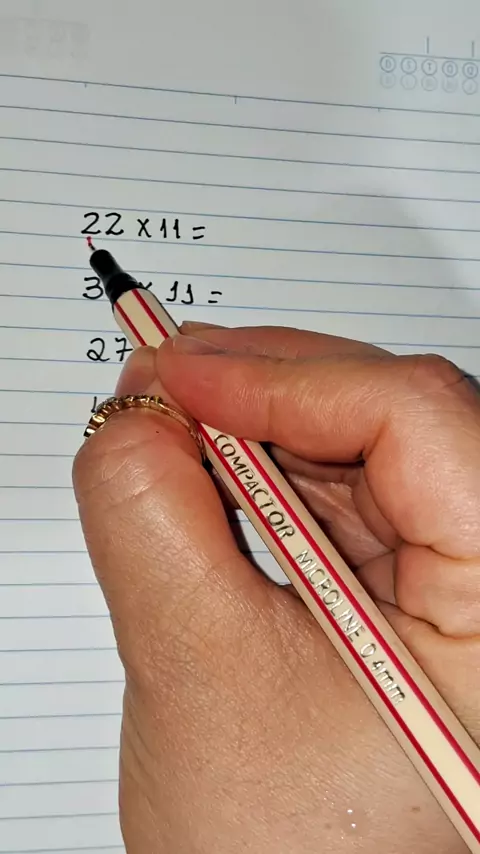 22 x 11 =
3 x 11 =
27
COMPACTOR MICROLINE 0.4mm